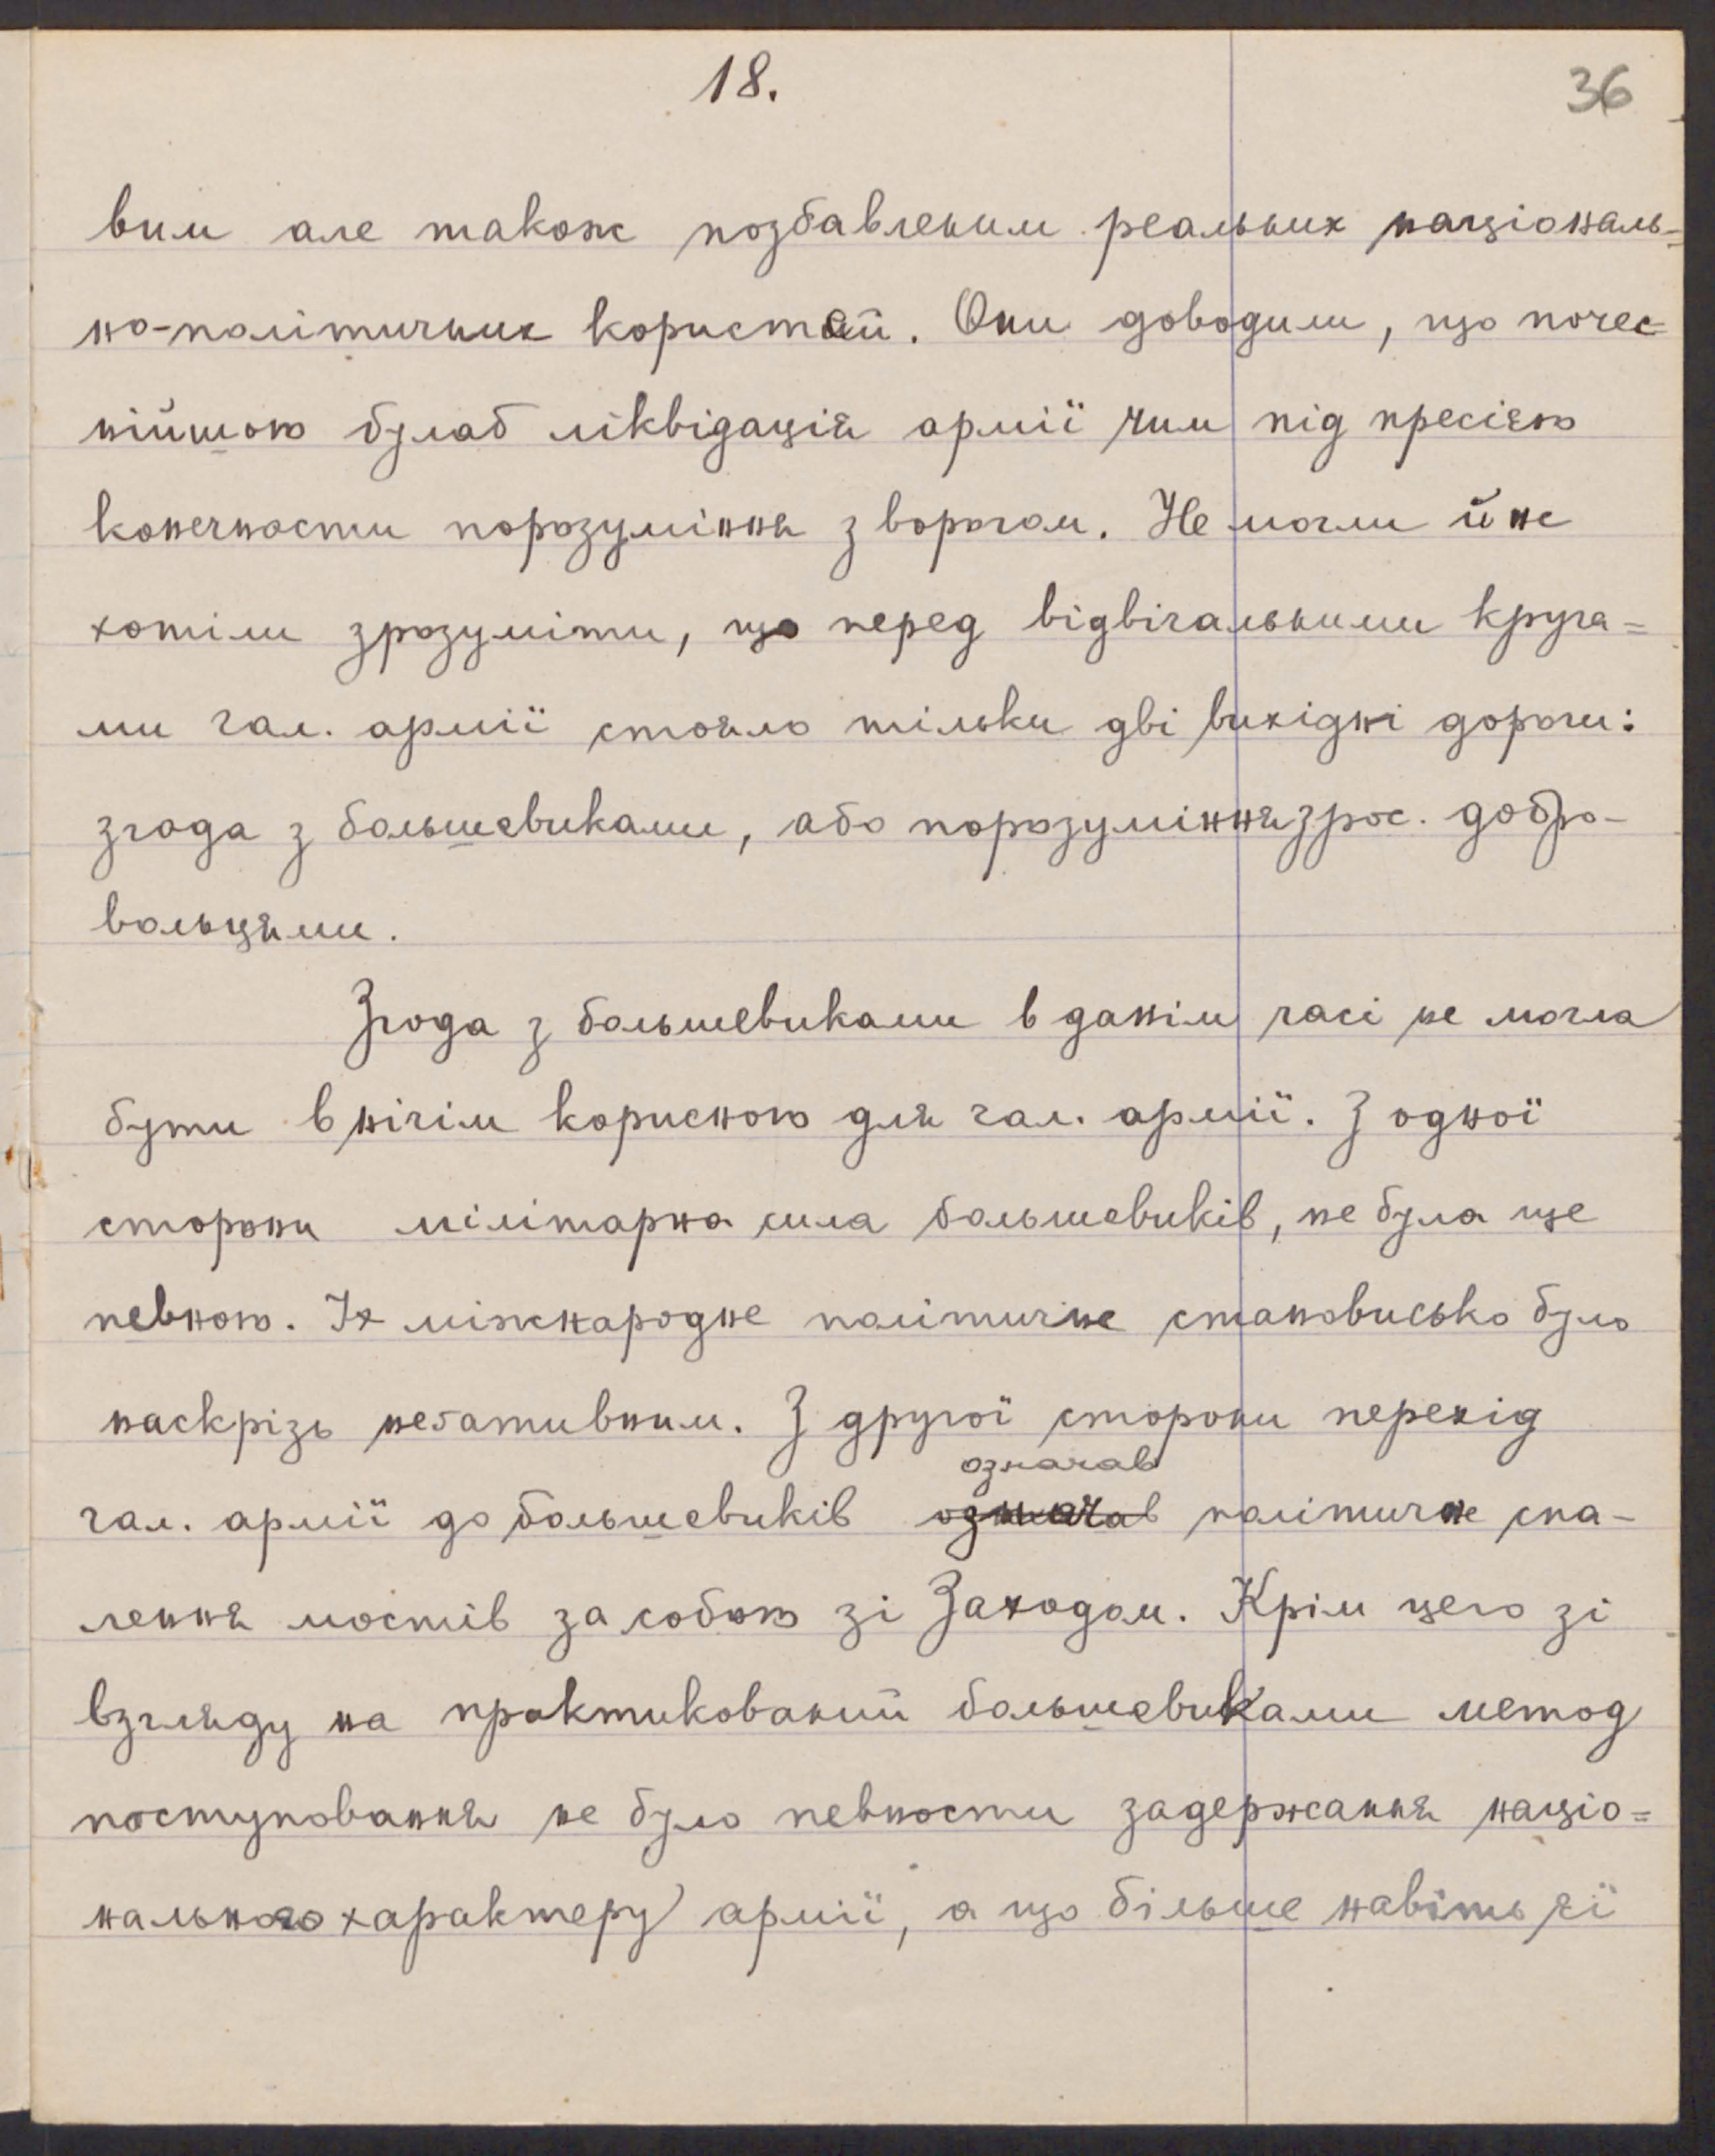 18.
36
вим але також позбавленим реальних національ=
но-політичних користей. Они доводили, що почес-
нійшою булаб ліквідація армії чим під пресією
конечности порозуміння з ворогом. Не могли й не
хотіли зрозуміти, що перед відвічальними круга=
ми гал. армії стояло тільки дві вихідні дороги:
згода з большевиками, або порозуміння з рос. добро-
вольцями.
Згода з большевиками в данім часі не могла
бути в нічім корисною для гал. армії. З одної
сторони мілітарна сила большевиків, не була ще
певною. Їх міжнародне політичне становисько було
наскрізь неґативним. З другої сторони перехід
означав
гал. армії до большевиків означав політичне спа-
лення мостів за собою зі Заходом. Крім цего зі
взгляду на практикований большевиками метод
поступовання не було певности задержання націо=
нального характеру армії, а що більше навіть єї